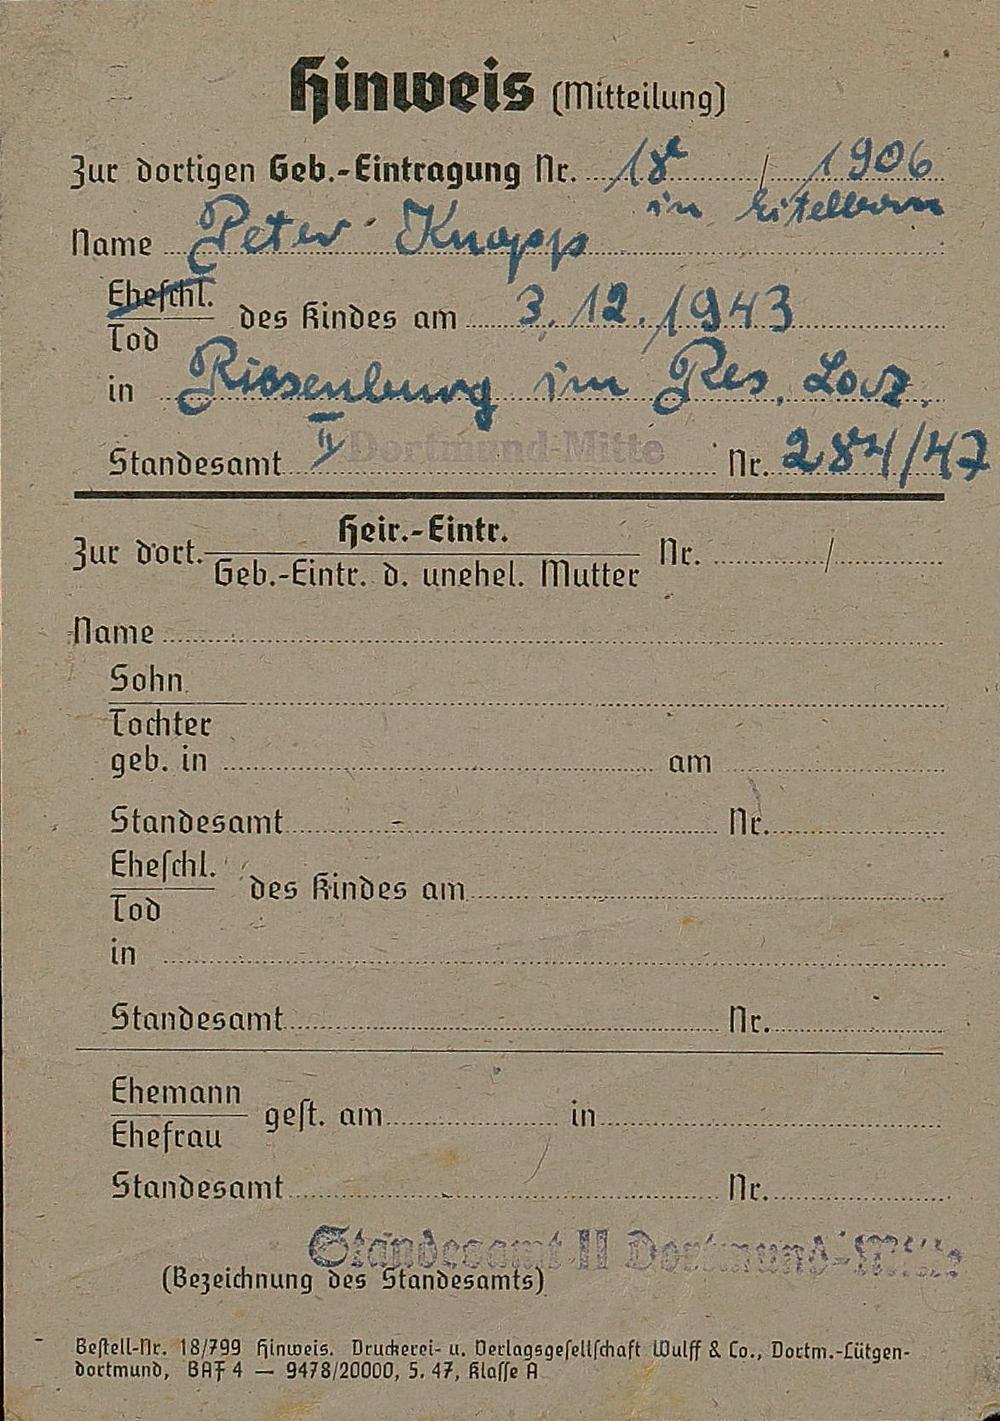 Hinweis (Mitteilung)
Zur dortigen Geb.-Eintragung Nr. 18 / 1906
in Eitelborn
Name Peter Knopp
Eheschl.
Tod
des Kindes am 3.12.1943
in Riesenburg im Res. Laz.
Standesamt II Dortmund-Mitte Nr. 284/47
Heir.-Eintr.
Zur dort. Nr. /
Geb.-Eintr. d. unehel. Mutter
Name
Sohn
Tochter
geb. in am
Standesamt Nr.
Eheschl.
Tod
des Kindes am
in
Standesamt Nr.
Ehemann
Ehefrau
gest. am in
Standesamt Nr.
Standesamt II Dortmund-Mitte
(Bezeichnung des Standesamts)
Bestell-Nr. 18/799 Hinweis. Druckerei- u. Verlagsgesellschaft Wulff & Co., Dortm.-Lütgen-
dortmund, BAF 4 — 9478/20000, 5. 47, Klasse A